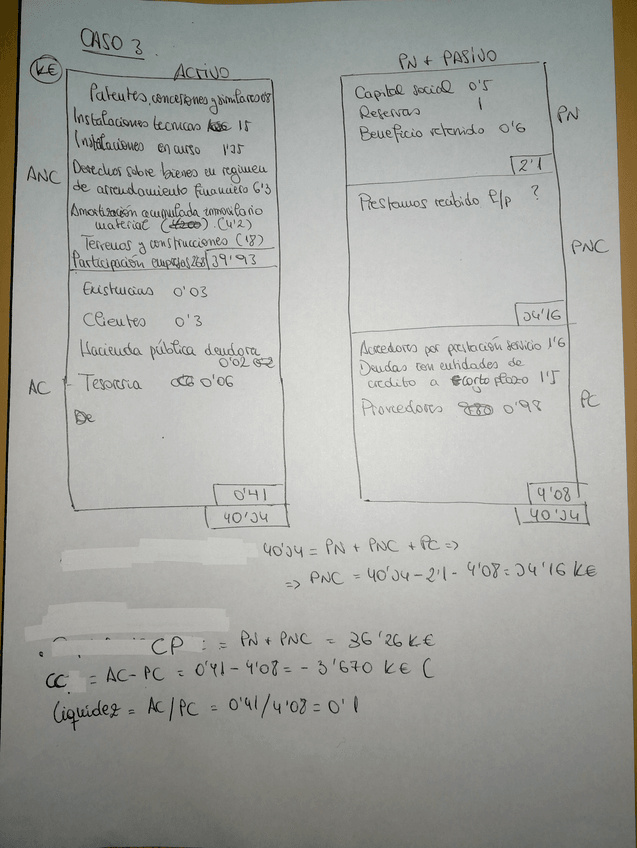 CASO 3
K€
ACTIVO
Patentes, concesiones y similares 0'8
Instalaciones tecnicas 15
Instalaciones en curso 1'25
ANC
Derechos sobre bienes en regimen
de arrendamiento financiero 6'3
Amortización acumulada inmovilizado
material (4'2)
Terrenos y construcciones (18)
Participación empresas 2'68 39'93
Existencias 0'03
Clientes 0'3
Hacienda pública deudora
0'02
AC
Tesoreria 0'06
De
0'41
40'34
PN + PASIVO
Capital social 0'5
Reservas 1
Beneficio retenido 0'6
PN
2'1
Prestamos recibido l/p ?
PNC
34'16
Acreedores por prestación servicio 1'6
Deudas con entidades de
crédito a corto plazo 1'5
Proveedores 0'98
PC
4'08
40'34
40'34 = PN + PNC + PC =>
=> PNC = 40'34 - 2'1 - 4'08 = 34'16 K€
CP = PN + PNC = 36'26 K€
CC = AC - PC = 0'41 - 4'08 = - 3'670 K€ (
Liquidez = AC/PC = 0'41/4'08 = 0'1